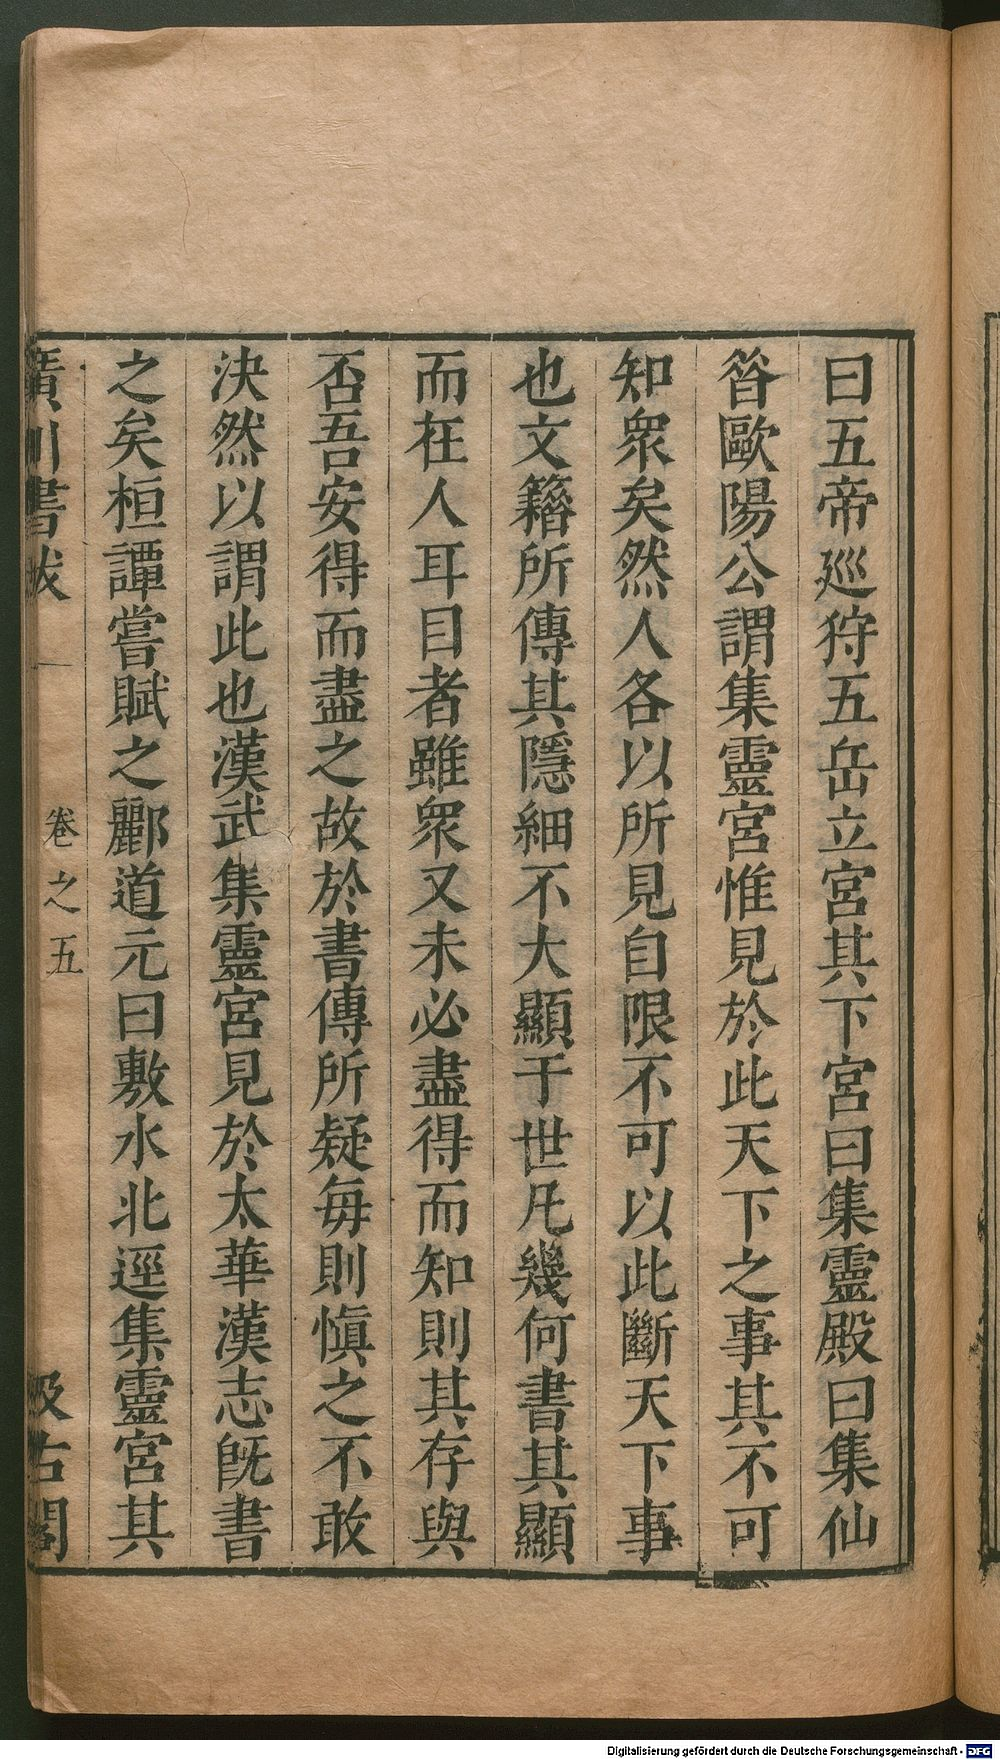 曰五帝廵狩五岳立宮其下宮曰集靈殿曰集仙
昝歐陽公謂集靈宮惟見於此天下之事其不可
知衆矣然人各以所見自限不可以此斷天下事
也文籍所傳其隱細不大顯于世凡幾何書其顯
而在人耳目者雖衆又未必盡得而知則其存與
否吾安得而盡之故於書傳所疑每則愼之不敢
決然以謂此也漢武集靈宮見於太華漢志旣書
之矣桓譚嘗賦之酈道元曰敷水北逕集靈宮其
廣川書跋
卷之五
汲古閣
Digitalisierung gefördert durch die Deutsche Forschungsgemeinschaft - DFG